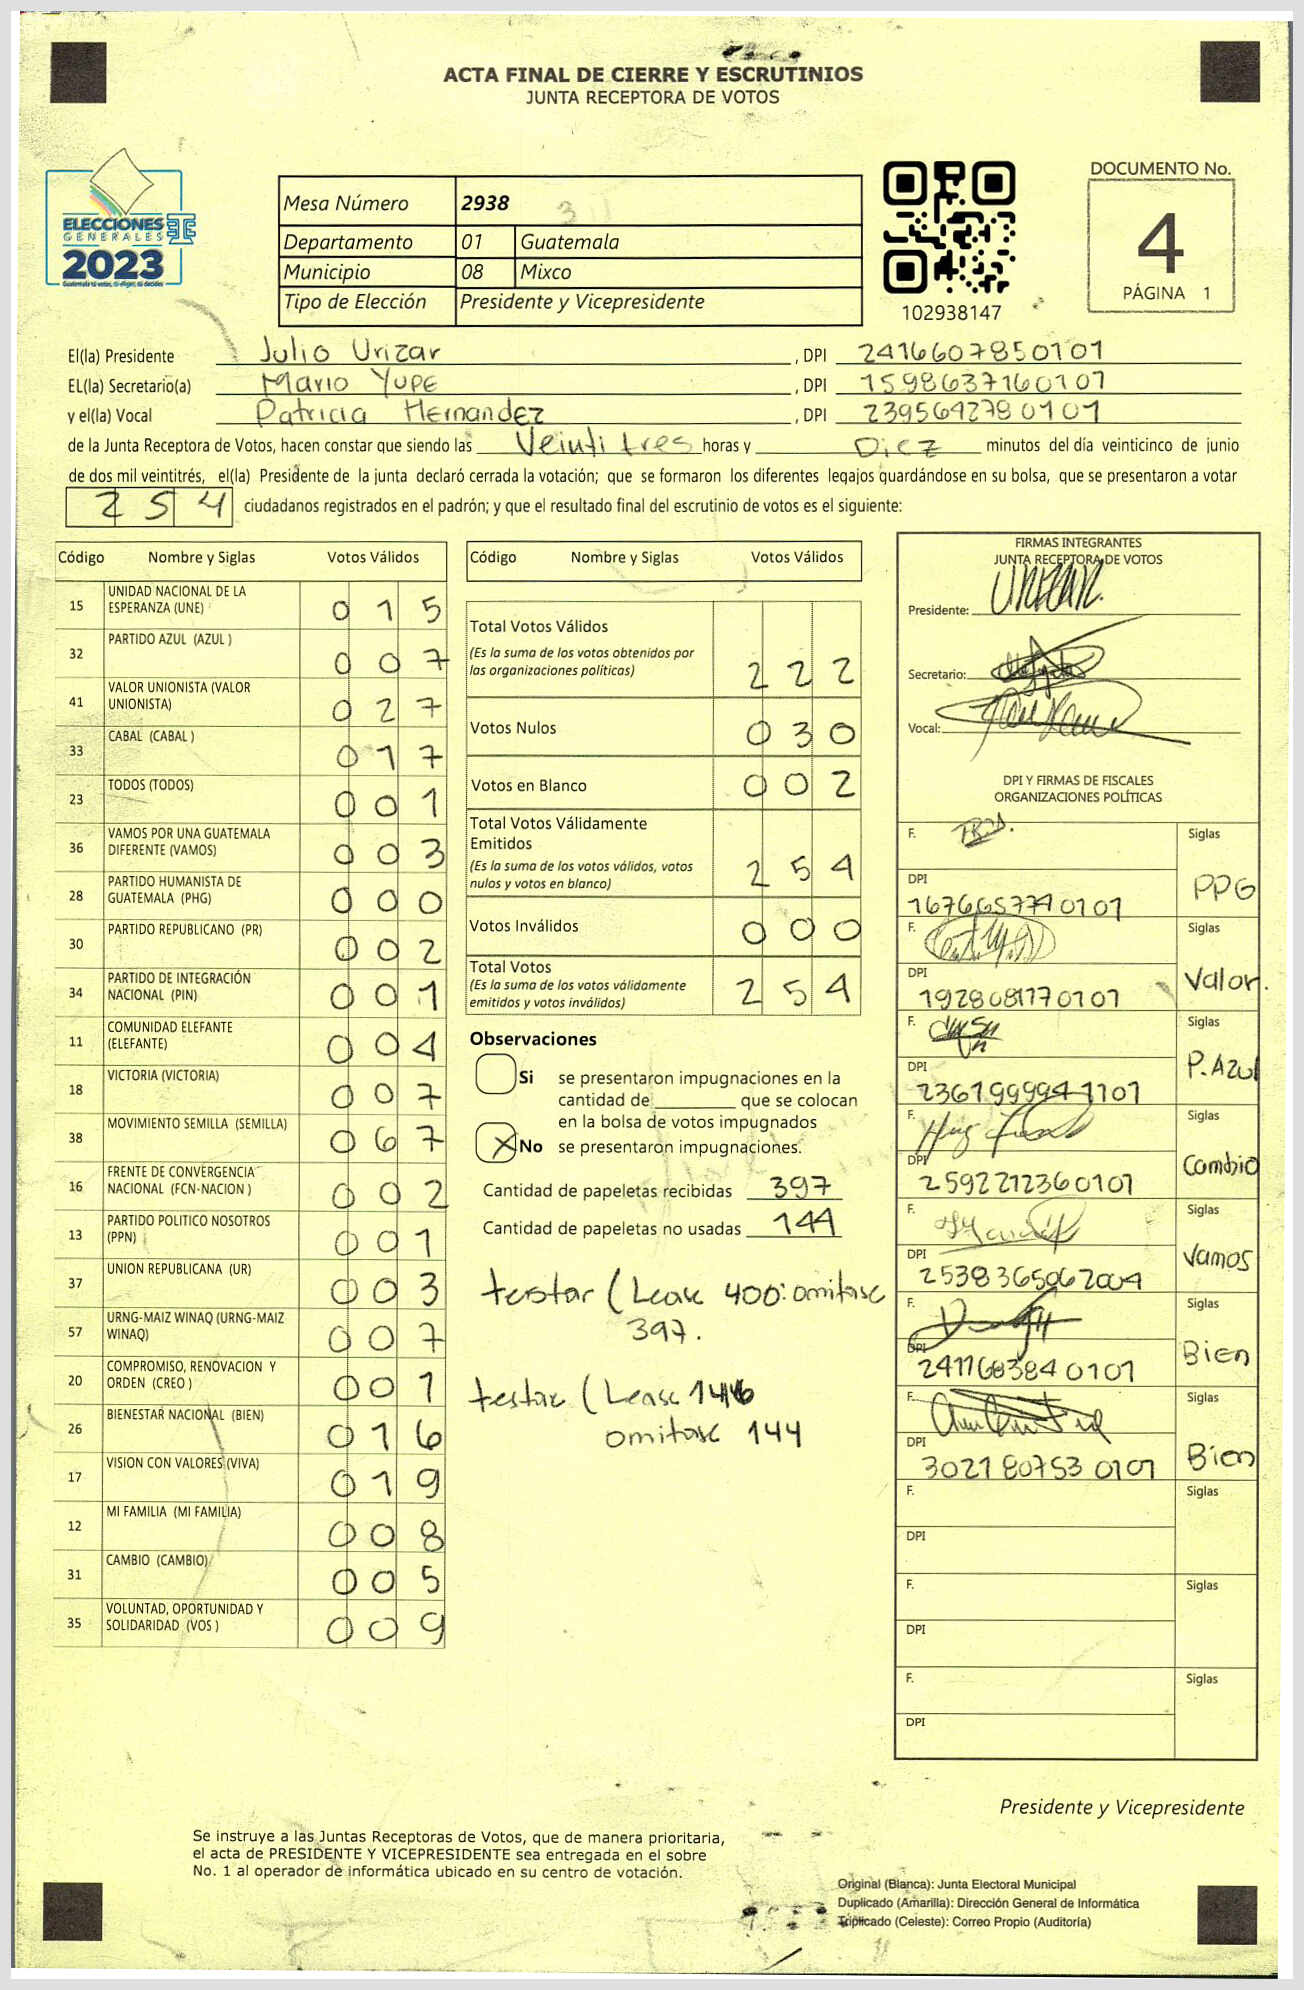 ACTA FINAL DE CIERRE Y ESCRUTINIOS
JUNTA RECEPTORA DE VOTOS
ELECCIONES
GENERALES
2023
Mesa Número 2938
Departamento 01 Guatemala
Municipio 08 Mixco
Tipo de Elección Presidente y Vicepresidente
102938147
DOCUMENTO No.
4
PÁGINA 1
El(la) Presidente Julio Urizar , DPI 2416607850101
EL(la) Secretario(a) Mario Yupe , DPI 1598637160101
y el(la) Vocal Patricia Hernandez , DPI 2395642780101
de la Junta Receptora de Votos, hacen constar que siendo las Veinti tres horas y Diez minutos del día veinticinco de junio
de dos mil veintitrés, el(la) Presidente de la junta declaró cerrada la votación; que se formaron los diferentes legajos guardándose en su bolsa, que se presentaron a votar
254 ciudadanos registrados en el padrón; y que el resultado final del escrutinio de votos es el siguiente:
Código Nombre y Siglas Votos Válidos
15 UNIDAD NACIONAL DE LA ESPERANZA (UNE) 015
32 PARTIDO AZUL (AZUL ) 007
41 VALOR UNIONISTA (VALOR UNIONISTA) 027
33 CABAL (CABAL ) 017
23 TODOS (TODOS) 001
36 VAMOS POR UNA GUATEMALA DIFERENTE (VAMOS) 003
28 PARTIDO HUMANISTA DE GUATEMALA (PHG) 000
30 PARTIDO REPUBLICANO (PR) 002
34 PARTIDO DE INTEGRACIÓN NACIONAL (PIN) 001
11 COMUNIDAD ELEFANTE (ELEFANTE) 004
18 VICTORIA (VICTORIA) 007
38 MOVIMIENTO SEMILLA (SEMILLA) 067
16 FRENTE DE CONVERGENCIA NACIONAL (FCN-NACION ) 002
13 PARTIDO POLITICO NOSOTROS (PPN) 001
37 UNION REPUBLICANA (UR) 003
57 URNG-MAIZ WINAQ (URNG-MAIZ WINAQ) 007
20 COMPROMISO, RENOVACION Y ORDEN (CREO ) 001
26 BIENESTAR NACIONAL (BIEN) 016
17 VISION CON VALORES (VIVA) 019
12 MI FAMILIA (MI FAMILIA) 008
31 CAMBIO (CAMBIO) 005
35 VOLUNTAD, OPORTUNIDAD Y SOLIDARIDAD (VOS ) 009
Código Nombre y Siglas Votos Válidos
Total Votos Válidos
(Es la suma de los votos obtenidos por
las organizaciones politicas) 222
Votos Nulos 030
Votos en Blanco 002
Total Votos Válidamente
Emitidos
(Es la suma de los votos válidos, votos
nulos y votos en blanco) 254
Votos Inválidos 000
Total Votos
(Es la suma de los votos válidamente
emitidos y votos inválidos) 254
Observaciones
Si se presentaron impugnaciones en la
cantidad de ________ que se colocan
en la bolsa de votos impugnados
X No se presentaron impugnaciones.
Cantidad de papeletas recibidas 397
Cantidad de papeletas no usadas 144
testar ( Lease 400: omitase
397.
testar ( Lease 146
omitase 144
FIRMAS INTEGRANTES
JUNTA RECEPTORA DE VOTOS
Presidente: URIZAR.
Secretario:
Vocal:
DPI Y FIRMAS DE FISCALES
ORGANIZACIONES POLÍTICAS
F. Siglas
DPI 1676657740101 PPG
F. Siglas
DPI 1928081170101 Valor.
F. Siglas
DPI 2361999941101 P. Azul
F. Siglas
DPI 2592212360101 Cambio
F. Siglas
DPI 2538365062004 Vamos
F. Siglas
DPI 2411683840101 Bien
F. Siglas
DPI 3021807530101 Bien
F. Siglas
DPI
F. Siglas
DPI
F. Siglas
DPI
Presidente y Vicepresidente
Se instruye a las Juntas Receptoras de Votos, que de manera prioritaria,
el acta de PRESIDENTE Y VICEPRESIDENTE sea entregada en el sobre
No. 1 al operador de informática ubicado en su centro de votación.
Original (Blanca): Junta Electoral Municipal
Duplicado (Amarilla): Dirección General de Informática
Triplicado (Celeste): Correo Propio (Auditoría)